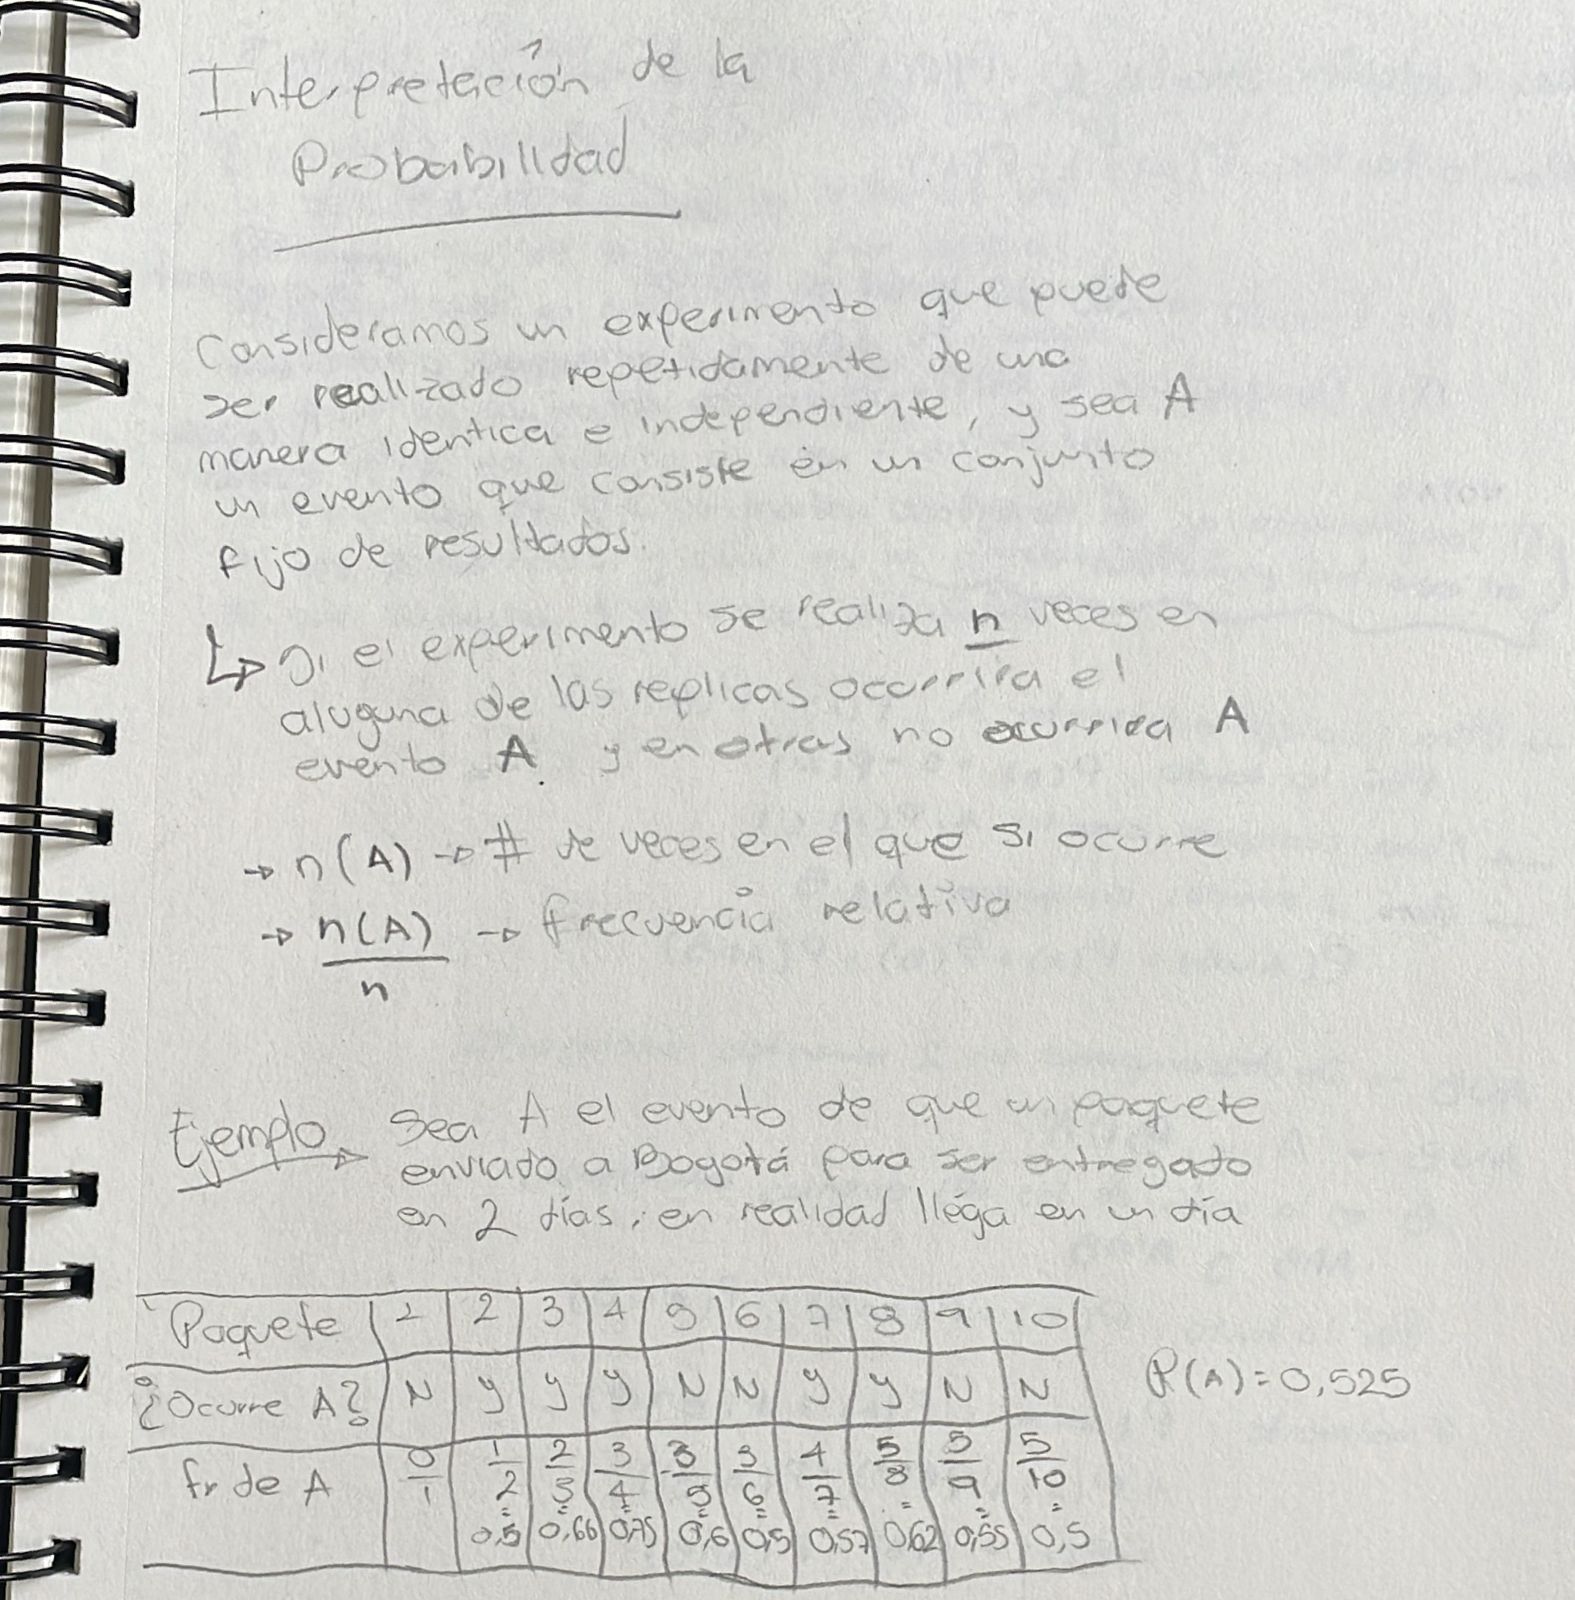 Interpretación de la
Probabilidad
Consideramos un experimento que puede
ser realizado repetidamente de una
manera identica e independiente, y sea A
un evento que consiste en un conjunto
fijo de resultados.
↳ Si el experimento se realiza n veces en
aluguna de las replicas ocurrira el
evento A y en otras no ocurrira A
→ n(A) → # de veces en el que si ocurre
→ n(A)/n → frecuencia relativa
Ejemplo → Sea A el evento de que un paquete
enviado a Bogotá para ser entregado
en 2 días, en realidad lléga en un día
Paquete | 1 | 2 | 3 | 4 | 5 | 6 | 7 | 8 | 9 | 10
¿Ocurre A? | N | y | y | y | N | N | y | y | N | N
P(A) = 0,525
fr de A | 0/1 | 1/2 = 0,5 | 2/3 = 0,66 | 3/4 = 0,75 | 3/5 = 0,6 | 3/6 = 0,5 | 4/7 = 0,57 | 5/8 = 0,62 | 5/9 = 0,55 | 5/10 = 0,5